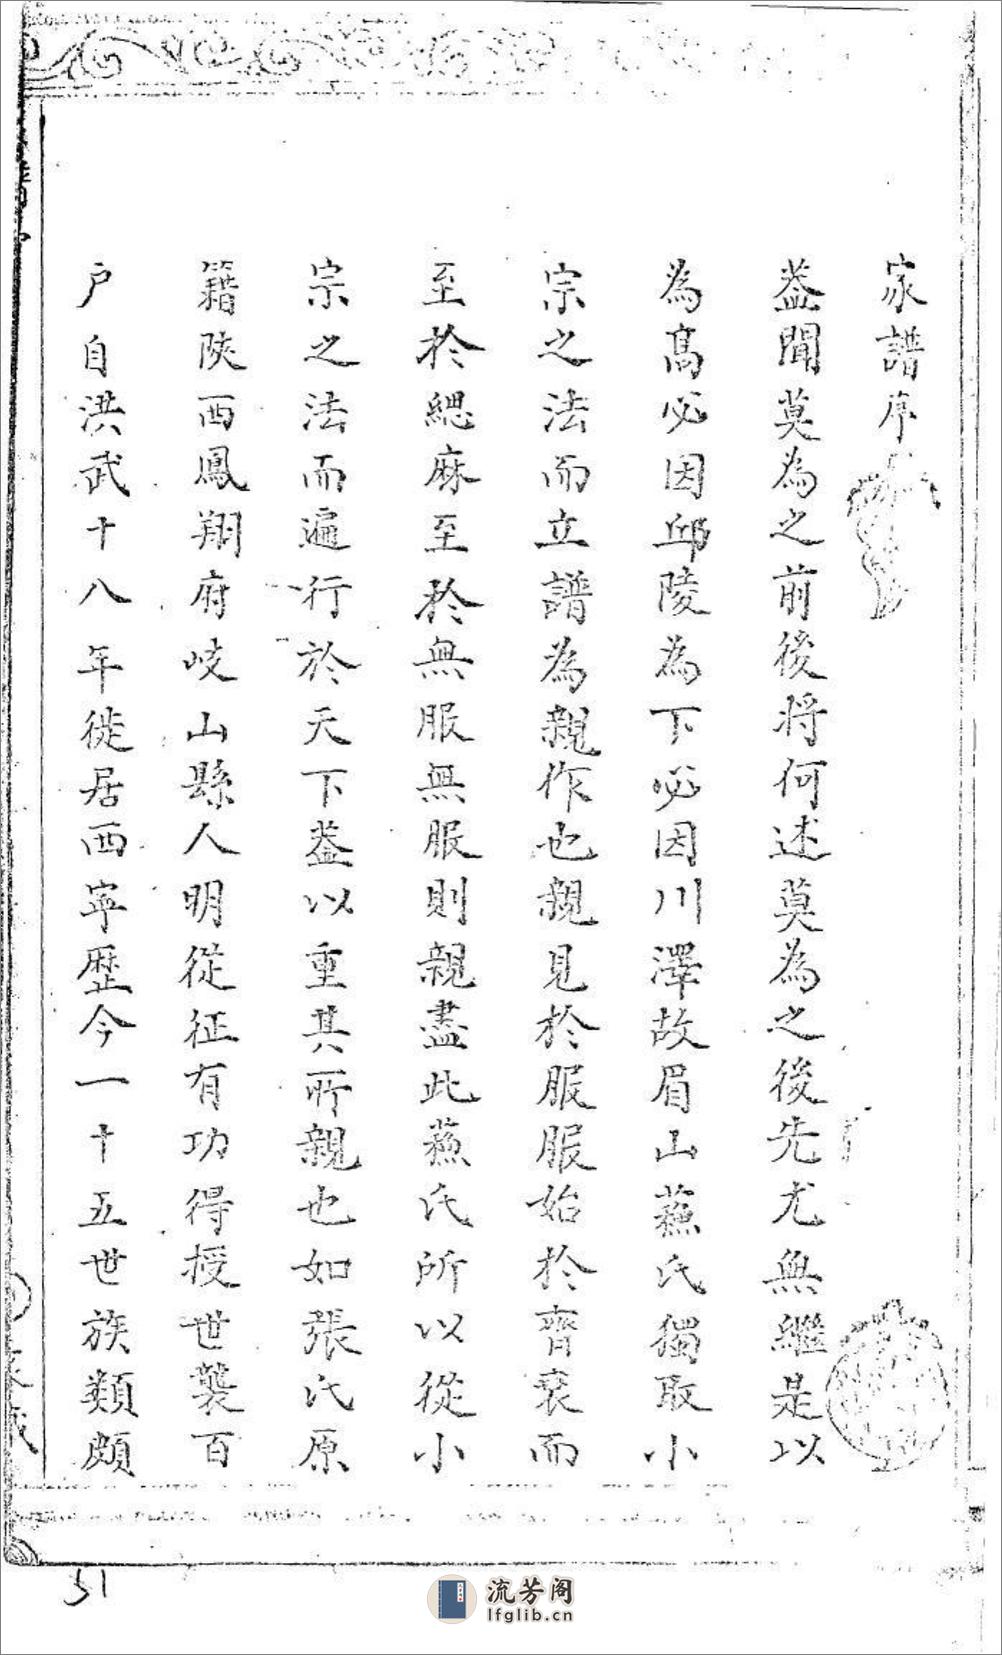 家譜序
葢聞莫為之前後將何述莫為之後先尤無繼是以
為髙必因邱陵為下必因川澤故眉山蘓氏獨取小
宗之法而立譜為親作也親見於服服始於齊衰而
至於緦麻至於無服無服則親盡此蘓氏所以從小
宗之法而遍行於天下葢以重其所親也如張氏原
籍陝西鳳翔府岐山縣人明從征有功得授世襲百
戶自洪武十八年徙居西寧歷今一十五世族類頗
51
流芳阁
lfglib.cn